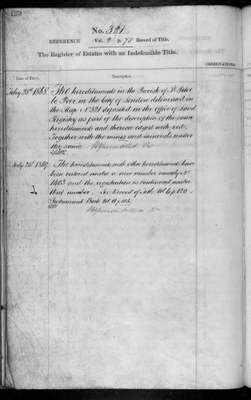 No. 321
REFERENCE Vol. 2 p. 72 Record of Title.
The Register of Estates with an Indefeasible Title.
OBSERVATIONS
Date of Entry.
Description.
The hereditaments in the Parish of St Peter
le Poor in the City of London delineated in
the Map No 321 deposited in the office of Land
Registry as part of the description of the said
hereditaments and thereon edged with red.
Together with the mines and minerals under
the same
The hereditaments with other hereditaments have
been entered under a new number namely No
1403 and the registration is continued under
that number. See Record of Title Vol 6 p 120
Instrument Book Vol